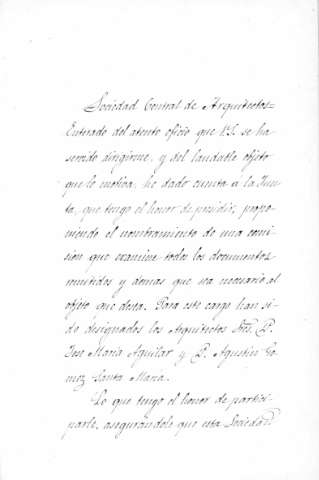 Sociedad Central de Arquitectos=
Enterado del atento oficio que V.S. se ha
servido dirigirme, y del laudable objeto
que le motiva, he dado cuenta á la Jun-
ta, que tengo el honor de presidir, propo-
niendo el nombramiento de una comi-
sion que examine todos los documentos
remitidos y demas que sea necesario al
objeto que desea. Para este cargo han si-
do designados los Arquitectos Sres. D.
Jose Maria Aguilar y D. Agustin Go-
mez Santa Maria.
Lo que tengo el honor de partici-
parle, asegurandole que esta Sociedad